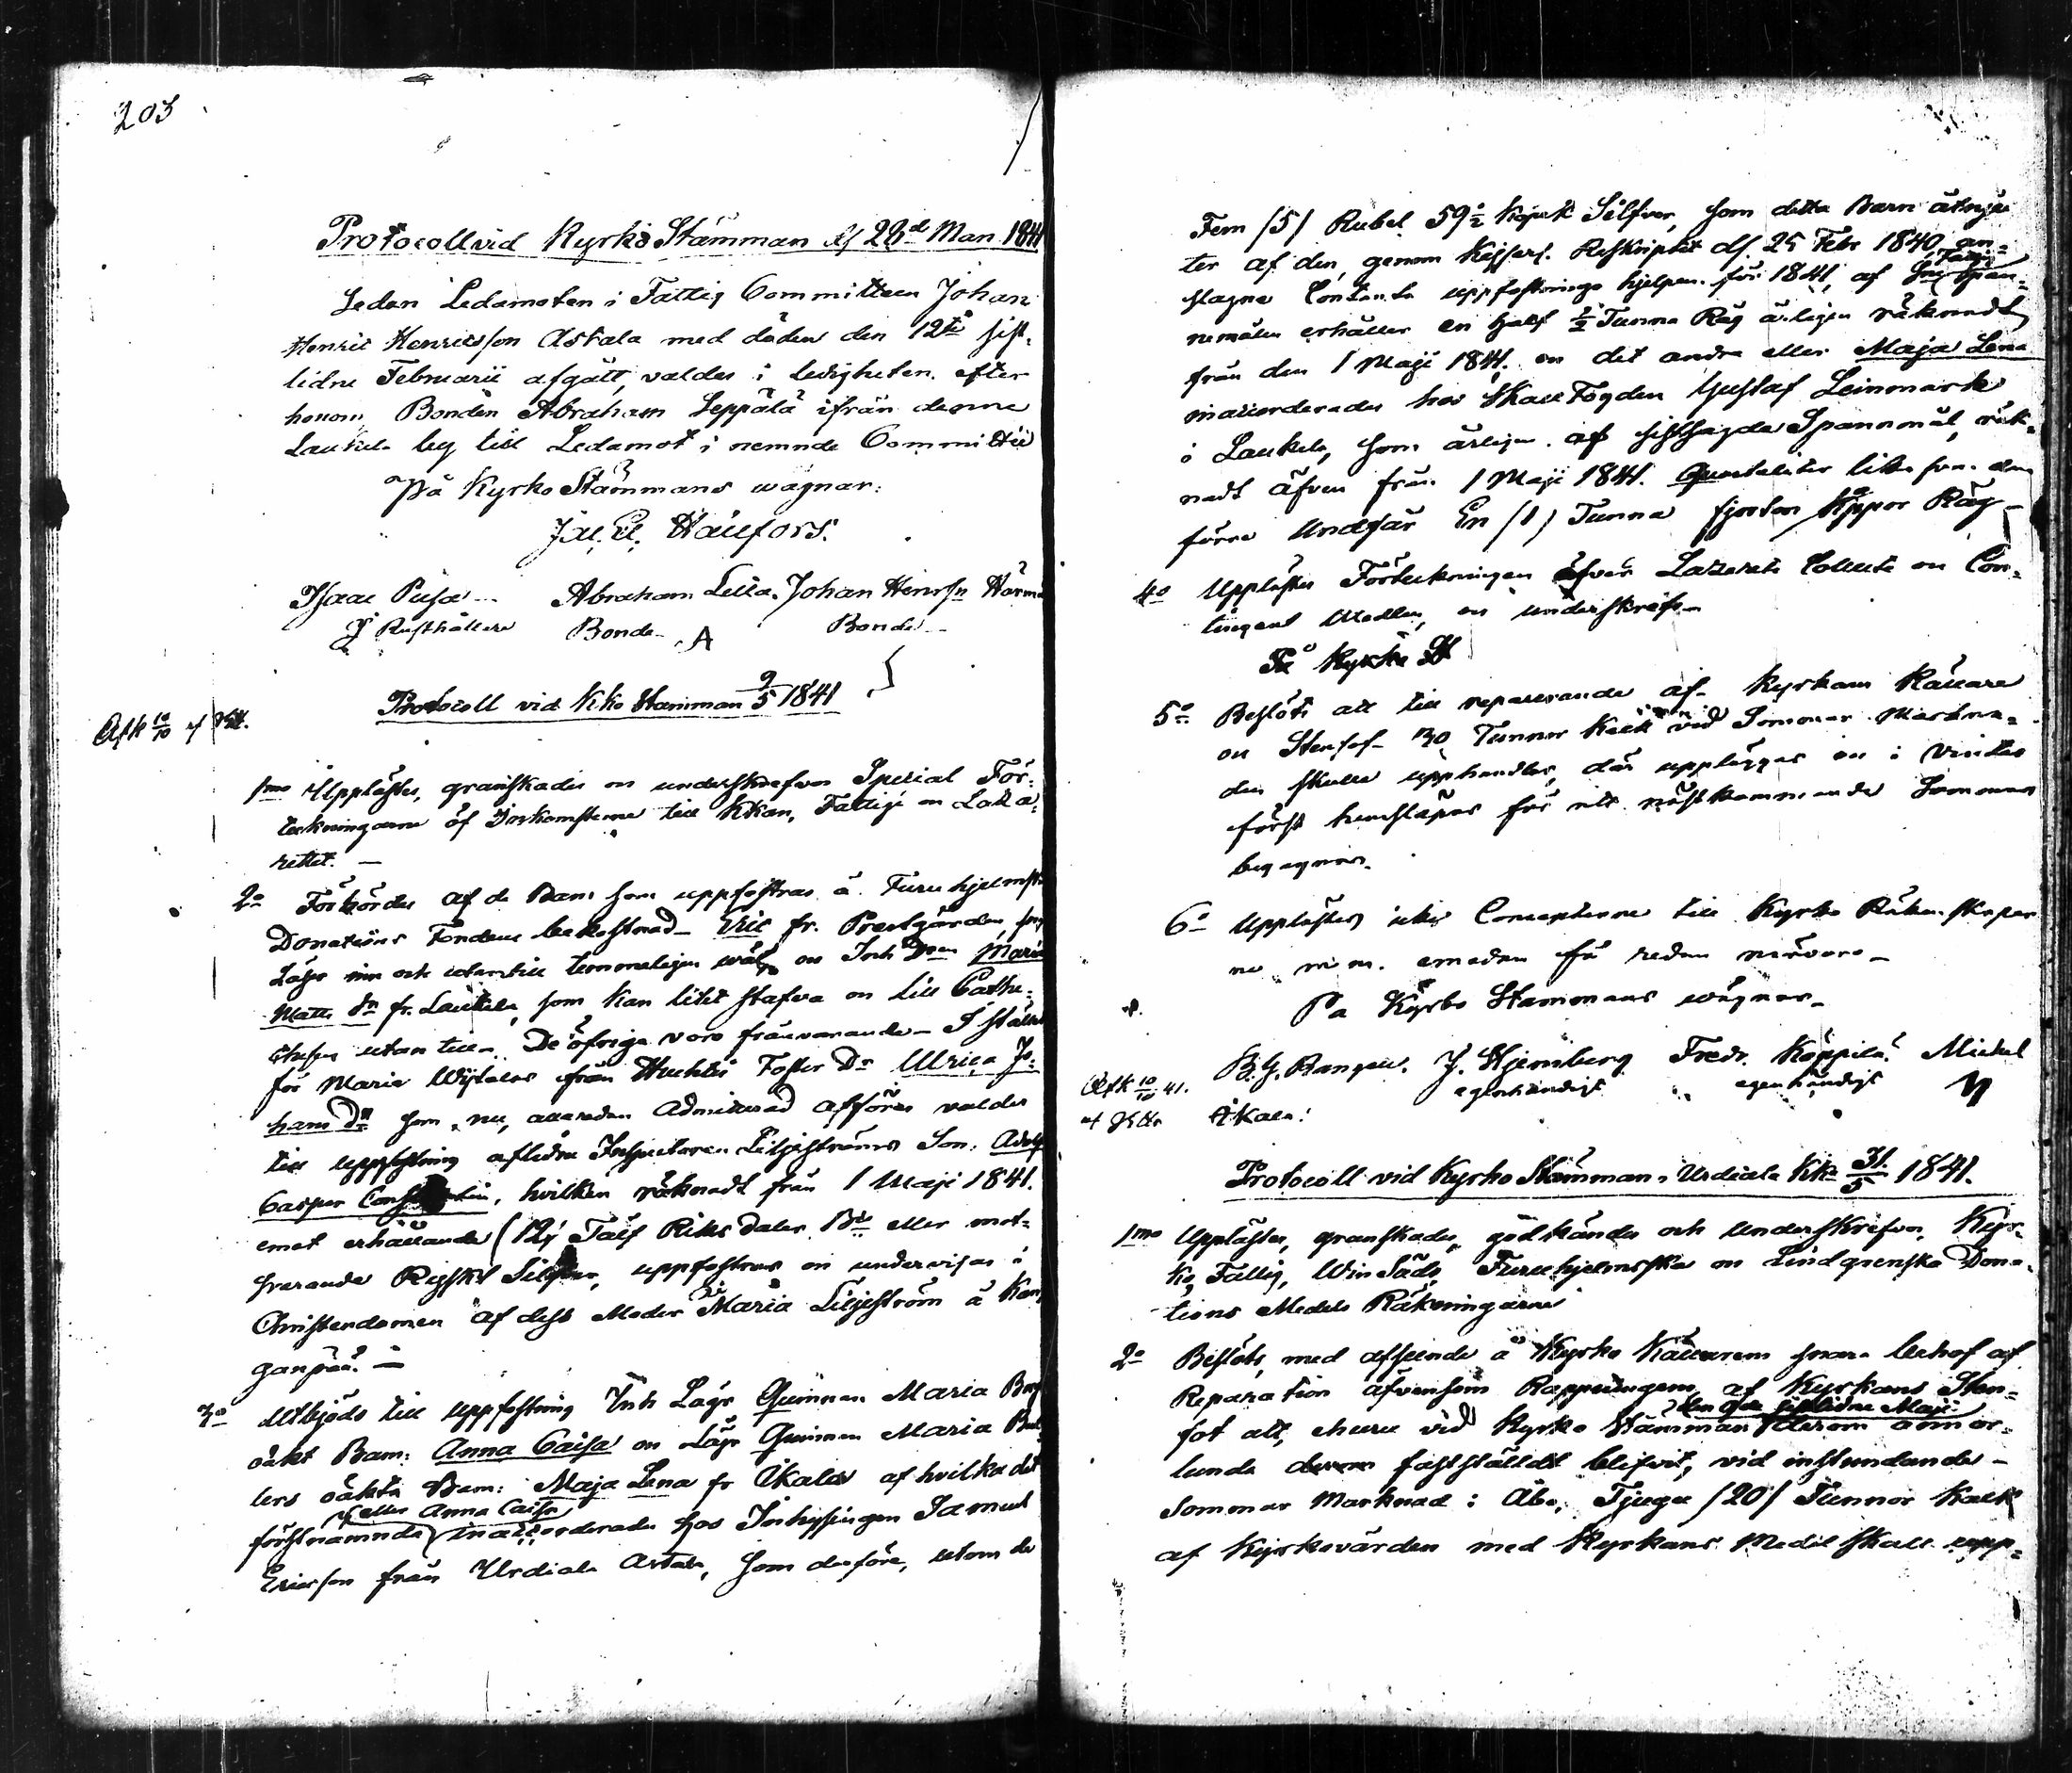 203
Protocoll vid Kyrko Stämman d. 28de Mars 1841
Sedan Ledamoten i Fattig Committeen Johan
Henric Henricsson Astala med döden den 12te sist-
lidne Februarii afgått, valdes i ledigheten efter
honom Bonden Abraham Seppälä ifrån denne
Laukela by till Ledamot i nemnde Committée
På Kyrko Stämmans wägnar:
Isaac Abraham Johan Henrss
Rusthållare Bonde Bonde
Protocoll vid Kko Stämman 9/5 1841
Afk 10/10
1mo Upplästes, granskades en underskrefvos Special För-
teckningarne af Inkomsterne till Kkan, Fattige en Laza-
rettet. —
2o Förhördes af de Barn som uppfostras å Furuhjelmska
Donations Fondens bekostnad Eric fr. Prestgården, som
Läser inn och utantill temmeligen wäl, en Inh Dren Maria
Matts Dr fr. Laukela, som kan litet stafva en till Cathe-
chesen utantill. De öfriga voro frånvarande – I stället
för Maria från Huhtis Foster Dr Ulrica Jo-
hans Dr som nu, allaredan Admitterad afföres valdes
till uppfostring aflidne Inspectoren Liljeströms Son: Adolf
Casper, hvilken räknadt från 1 Maji 1841.
emot erhållande (12) Tålf Riks Daler Bco eller mot-
svarande Ryskt Silfver, uppfostras en undervisas i
Christendomen af dess Moder Maria Liljeström å Kan-
ganpää. —
3o Utbjöds till uppfostring Inh Lägr Qwinnan Maria
oäkt Barn: Anna Caisa en Lägr Qwinnan Maria
lers oäkta Barn: Maja Lena fr Åkala af hvilka det
förstnämnda eller Anna Caisa inackorderades hos Inhysingen Samuel
Ericsson från Urdiala Astala, som derföre, utom de
Fem (5) Rubel 59½ Kopek Silfver, som detta Barn åtnju-
ter af den, genom Kejserl. Reskriptet d. 25 Febr 1840 an-
slagne Contanta uppfostrings hjelpen för 1841, af Fattig Span-
nemålen erhåller en half ½ Tunna Råg årligen räknadt
från den 1 Maji 1841. en det andra eller Maja Lena
inackorderades hos SkallFogden Gustaf Leinmark
i Laukela, som årligen af sistsagde Spannmål, räk-
nadt äfven från 1 Maji 1841. Quartaliter lika som den
förre Undfår En (1) Tunna fjorton Kappor Råg –
4o Upplästes Förteckningen öfver Lazaretts Collecte en Con-
tingent Medlen, en underskrefs –
På Kyrko St
5o Beslöts att till reparerande af Kyrkans Källare
en Stenfot 30 Tunnor Kalk vid Sommar Markna-
den skulle upphandlas, där uppläggas en i Vinter
först hemsläpas för att nästkommande Sommar
begagnas.
6o Upplästes icke Concepterne till Kyrko Räkenskaper
ne m.m. emedan få redan närvoro –
På Kyrko Stämmans wägnar –
J. Stjernberg Fredr. Köppilä Mickel
egenhändigt egenhändigt
Åkala:
Afk 10/10 41.
Protocoll vid Kyrko Stämman i Urdiala Kka 31/5 1841.
1mo Upplästes, granskades, godkändes och underskrefvos, Kyr-
ko, Fattig, Win Säds, Furuhjelmska en Lindgrenska Dona-
tions Medels Räkningarne
2o Beslöts, med afseende å Kyrko Källarens snara behof af
Reparation äfvensom Rappningens af Kyrkans Sten-
fot att, ehuru vid Kyrko Stämman den 9de sistlidne Maji derom annor-
lunda derom fastställdt blifvit, vid instundande –
Sommar Marknad i Åbo, Tjugu (20) Tunnor Kalk
af Kyrkovärden med Kyrkans Medel skall upp-